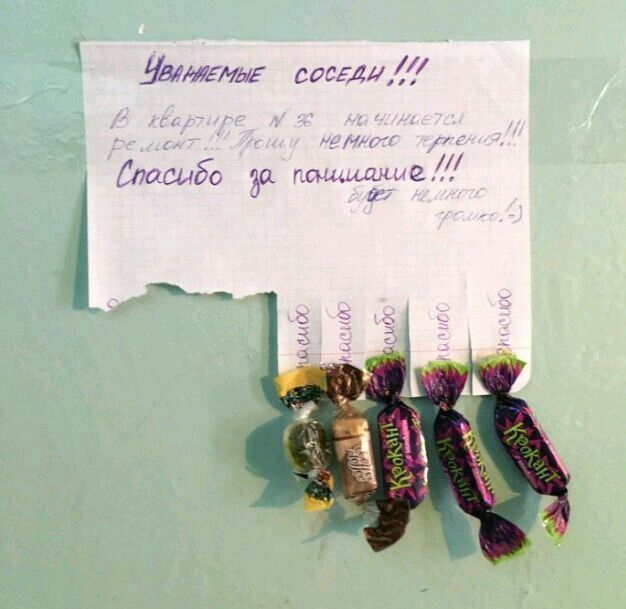 Уважаемые соседи!!!
В квартире N 36 начинается
ремонт!!! Прошу немного терпения!!!
Спасибо за понимание!!!
будет немного
громко! =)
спасибо
спасибо
спасибо
спасибо
спасибо
Крокант
Крокант
Крокант